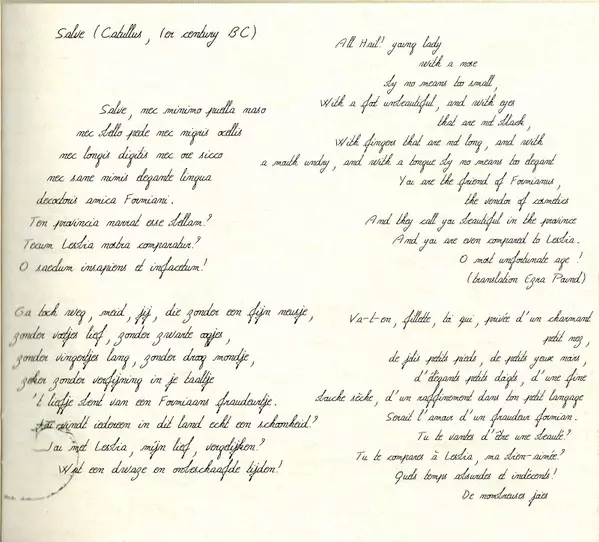 Salve (Catullus, 1er century BC)
Salve, nec minimo puella naso
nec bello pede nec nigris ocellis
nec longis digitis nec ore sicco
nec sane nimis elegante lingua
decoctoris amica Formiani.
Ten provincia narrat esse bellam?
Tecum Lesbia nostra comparatur?
O saeclum insapiens et infacetum!
All Hail! young lady
with a nose
by no means too small,
With a foot unbeautiful, and with eyes
that are not black,
With fingers that are not long, and with
a mouth undry, and with a tongue by no means too elegant
You are the friend of Formianus,
the vendor of cosmetics
And they call you beautiful in the province
And you are even compared to Lesbia.
O most unfortunate age!
(translation Ezra Pound)
Ga toch weg, meid, jij, die zonder een fijn neusje,
zonder voetjes lief, zonder zwarte oogjes,
zonder vingertjes lang, zonder droog mondje,
zeker zonder verfijning in je taaltje
't liefje bent van een Formiaans fraudeurtje.
Jou vindt iedereen in dit land echt een schoonheid?
Jou met Lesbia, mijn lief, vergelijken?
Wat een dwaze en onbeschaafde tijden!
Va-t-en, fillette, toi qui, privée d'un charmant
petit nez,
de jolis petits pieds, de petits yeux noirs,
d'élégants petits doigts, d'une fine
bouche sèche, d'un raffinement dans ton petit langage
Serait l'amour d'un fraudeur formian.
Tu te vantes d'être une beauté?
Tu te compares à Lesbia, ma bien-aimée?
Quels temps absurdes et indécents!
De nombreuses joies